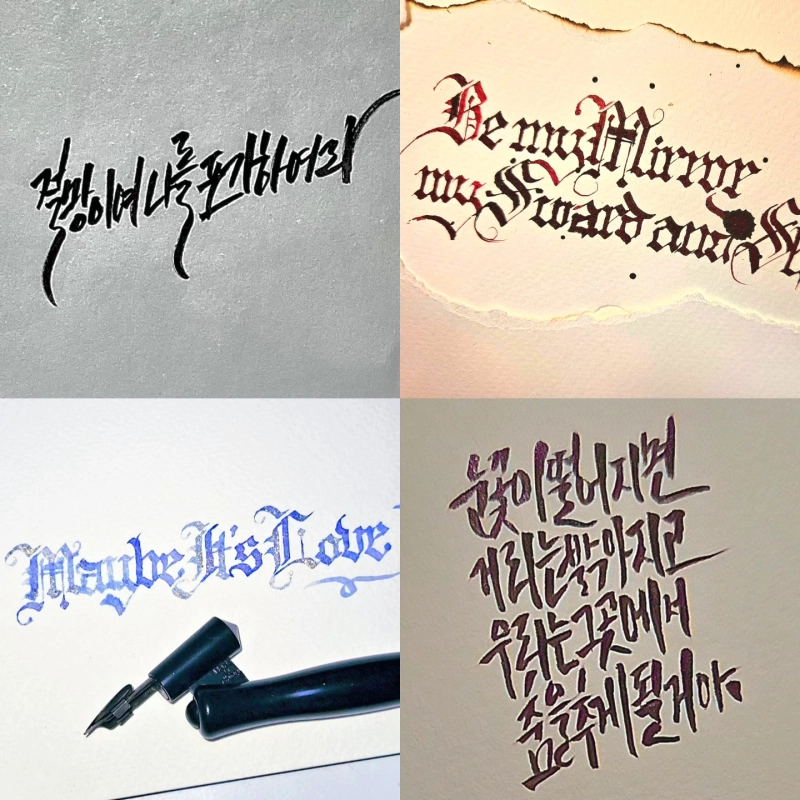 절망이여 나를 포기하여라
Be my Mirror
my Sword and
Maybe It's Love
눈꽃이 떨어지면
거리는 밝아지고
우리는 그곳에서
춤을 추게 될거야.